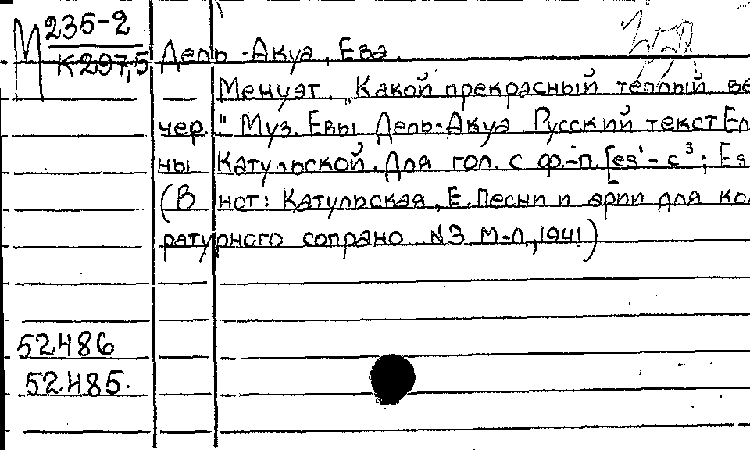 М 235-2
К 297,5
Дель-Акуа, Ева.
Менуэт. „Какой прекрасный теплый ве
чер." Муз. Евы Дель-Акуа Русский текст Еле
ны Катульской. Для гол. с ф.-п. [es¹ - c³; Es
(В нот: Катульская, Е. Песни и арии для кол
ратурного сопрано №3 М-Л, 1941)
52486
52485.